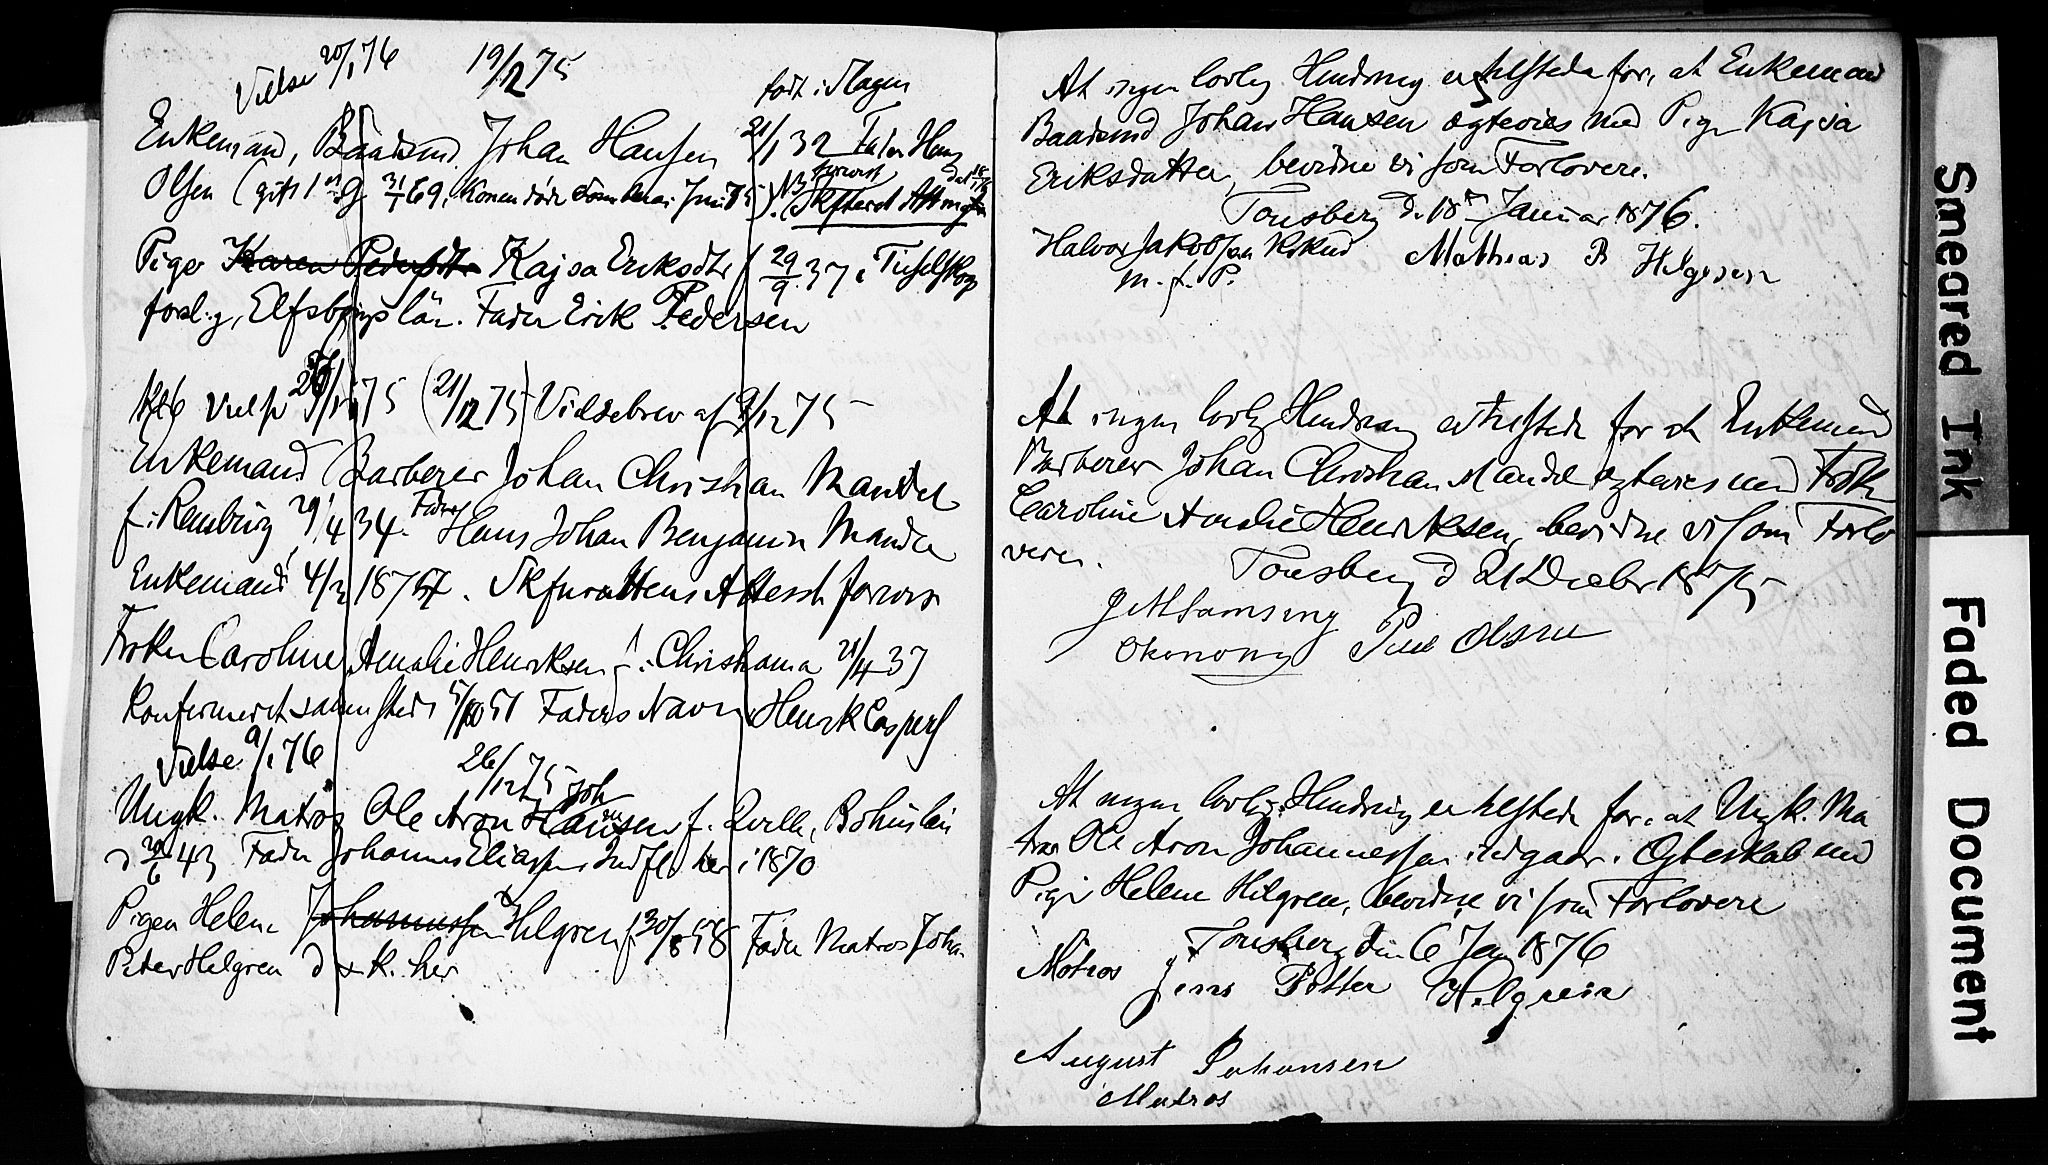 Vielse 20/1 76 19/12 75
født i Slagen
Enkemand, Baadsmd Johan Hansen 21/1 32 Fader Hans
Olsen (gift 1ste G. 31/1 69, Konen døde Juni 75). NB Skifteret Attest
forevist
Pigen Karen Pedersdtr Kajsa Eriksdtr f 29/9 37 i
Elfsborgs län. Fader Erik Pedersen
Vielse 75 (21/12 75) Vielsebrev af 9/12 75
Enkemand Barberer Johan Christian Mandel
f. i 29/4 34. Fader Hans Johan Benjamin Mandel
Enkemand 4/2 187 . Skifterettens Attest forevist
Frøken Caroline Amalie Henriksen f. i Christiania 21/4 37
Konfirmeret sammesteds 5/10 51 Faders Navn Henrik
Vielse 9/1 76
26/12 75
Joh
Ungk. Matros Ole Aron Hansen f. Qville, Bohuslen
d 43 Fader Johannes Eliassen Indfl. her i 1870
Pigen Helene Johannessen Helgren f 30/8 58 Fader Matros Johan
Peter Helgren d & k. her
At ingen lovlig Hindring er tilstede for, at Enkemand
Baadsmd Johan Hansen ægtevies med Pige Kajsa
Eriksdatter, bevidne vi som Forlovere.
Tønsberg d. 18de Januar 1876.
Halvor Jakobsen Mathias B Helgesen
m. f. P.
At ingen lovlig Hindring er tilstede for at Enkemand
Barberer Johan Christian Mandel ægtevies med Frøken
Caroline Amalie Henriksen, bevidne vi som Forlo
vere.
Tønsberg d 21 Decbr 1875
Økonom Olsen
At ingen lovlig Hindring er tilstede for, at Ungk. Ma
tros Ole Aron Johannessen indgaar i Ægteskab med
Pige Helene Helgren, bevidne vi som Forlovere
Tønsberg den 6 Jan 1876
Matros Jens Petter Helgrein
August Johansen
Matros
Smeared Ink
Faded Document